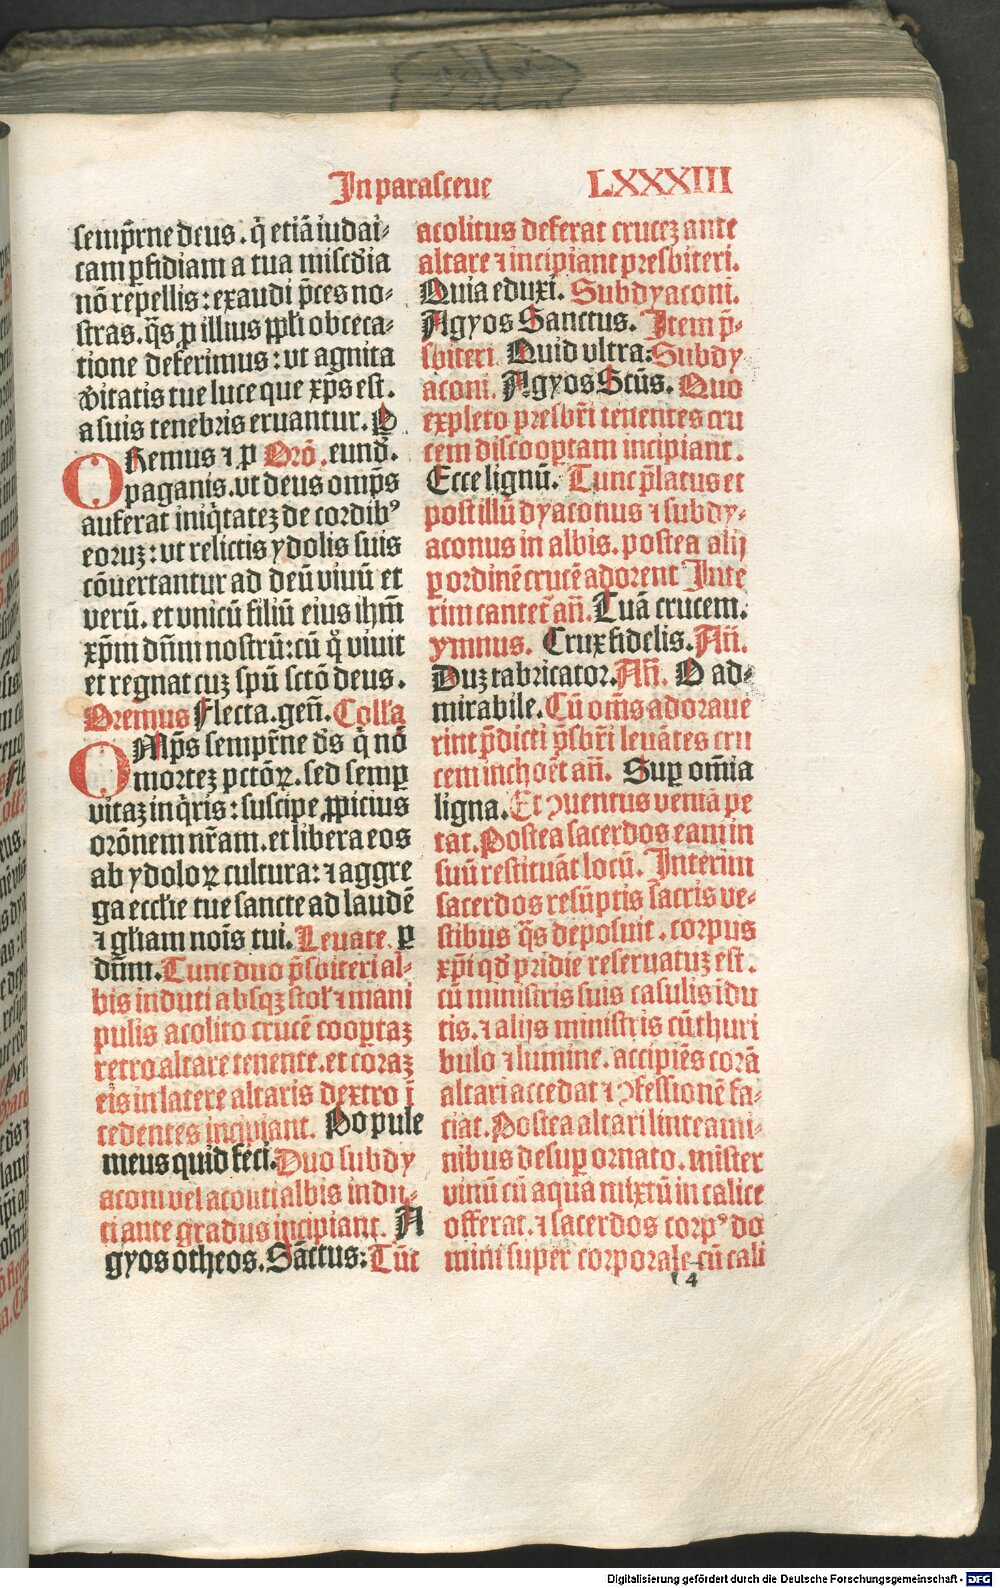 In parasceue LXXXIII
semp̄rne deus. q̄ etiā iudai⸗
cam ꝑfidiam a tua miscd̄ia
nō repellis: exaudi p̄ces no⸗
stras. q̄s ꝓ illius ppl̄i obceca⸗
tione deferimus: ut agnita
v̄itatis tue luce que xp̄s est.
a suis tenebris eruantur. P
ORemus ⁊ ꝓ Orō. eund̄.
paganis. vt deus omp̄s
auferat iniq̄tatez de cordibꝰ
eoruz: ut relictis ydolis suis
cōuertantur ad deū viuū et
verū. et vnicū filiū eius ihm̄
xp̄m dn̄m nostrū: cū q̄ viuit
et regnat cuz spū sctō deus.
Oremus Flecta. gen̄. Coll̄a
OMp̄s semp̄rne ds̄ q̄ nō
mortez pctōꝝ. sed semꝑ
vitaz inq̄ris: suscipe ꝓpicius
orōnem nr̄am. et libera eos
ab ydoloꝝ cultura: ⁊ aggre
ga eccl̄ie tue sancte ad laudē
⁊ gl̄iam nois̄ tui. Leuate. ꝑ
dn̄m. Tunc duo p̄sbiteri al⸗
bis induti absqꝫ stol̄ ⁊ mani
pulis acolito crucē cooptaꝫ
retro altare tenente. et coraꝫ
eis in latere altaris dextro ī
cedentes incipiant. Popule
meus quid feci. Duo subdy
aconi vel acoliti albis indu⸗
ti ante gradus incipiant. A
gyos otheos. Sāctus: Tūc
acolitus deferat crucez ante
altare ⁊ incipiant presbiteri.
Quia eduxi. Subdyaconi.
Agyos Sanctus. Item p̄⸗
sbiteri Quid vltra: Subdy
aconi. Agyos Sctūs. Quo
expleto presbr̄i tenentes cru
cem discooptam incipiant.
Ecce lignū. Tunc p̄latus et
post illū dyaconus ⁊ subdy⸗
aconus in albis. postea alij
ꝑ ordinē crucē adorent Inte
rim cantet᷑ an̄. Tuā crucem.
ymnus. Crux fidelis. An̄.
Duz fabricator. An̄. O ad⸗
mirabile. Cū om̄s adoraue
rint p̄dicti p̄sbr̄i leuātes cru
cem inchoēt an̄. Suꝑ om̄ia
ligna. Et ꝯuentus veniā pe
tat. Postea sacerdos eam in
suū restituāt locū. Interim
sacerdos resūptis sacris ve⸗
stibus q̄s deposuit. corpus
xp̄i qd̄ pridie reseruatuz est.
cū ministris suis casulis īdu
tis. ⁊ alijs ministris cū thuri
bulo ⁊ lumine. accipiēs corā
altari accedat ⁊ ꝯfessionē fa⸗
ciat. Postea altari linteami⸗
nibus desuꝑ ornato. mister
vinū cū aqua mixtū in calice
offerat. ⁊ sacerdos corpꝰ do
mini super corporale cū cali
l 4
Digitalisierung gefördert durch die Deutsche Forschungsgemeinschaft - DFG